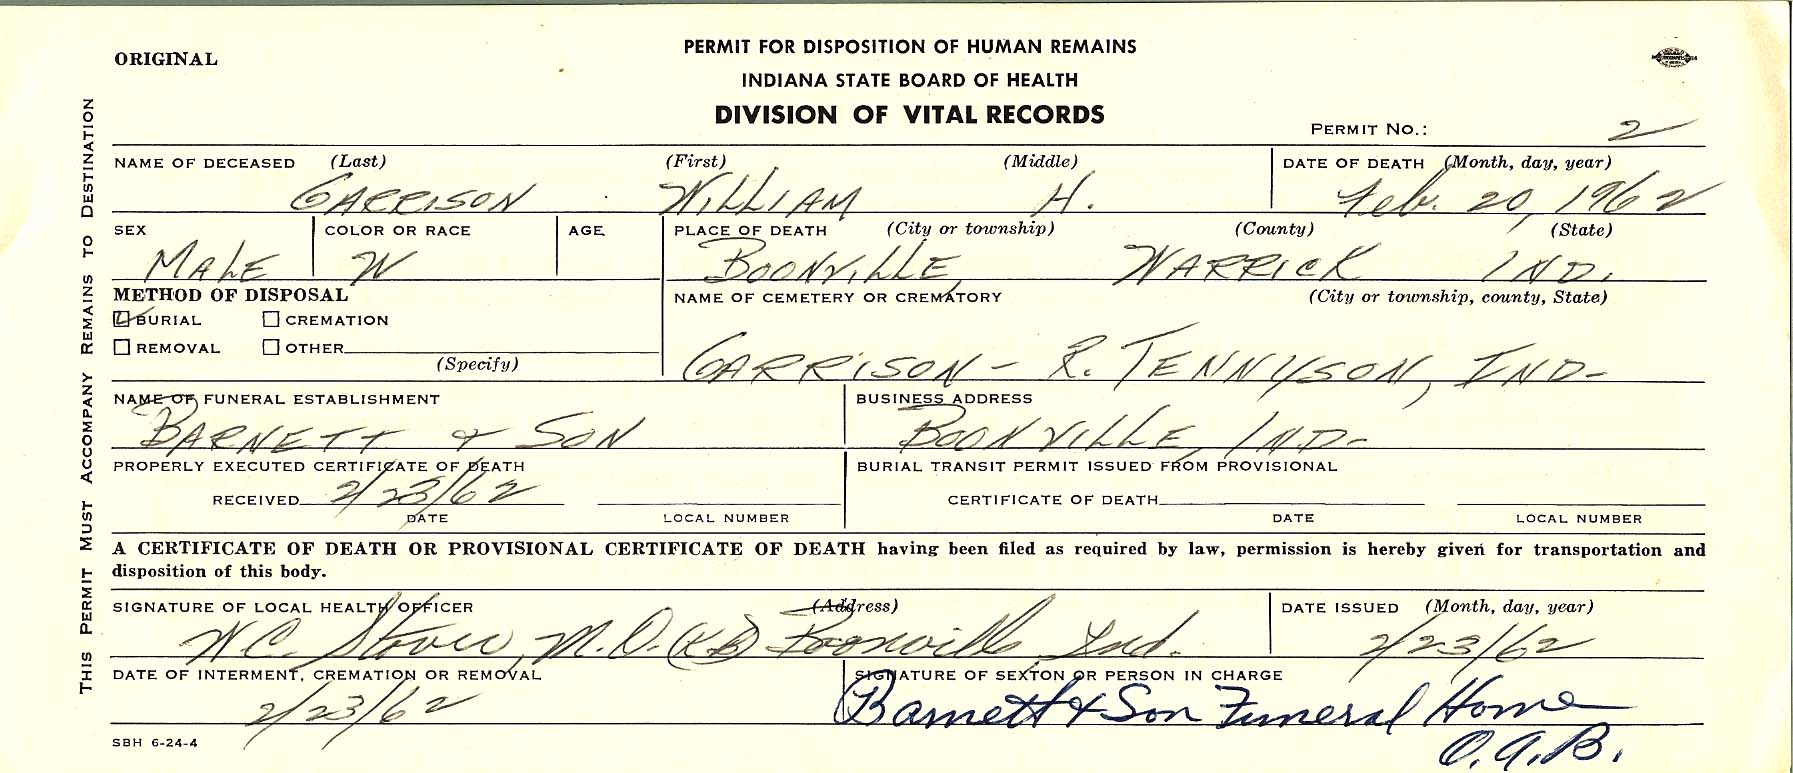 ORIGINAL
PERMIT FOR DISPOSITION OF HUMAN REMAINS
INDIANA STATE BOARD OF HEALTH
DIVISION OF VITAL RECORDS
PERMIT NO.: 2
THIS PERMIT MUST ACCOMPANY REMAINS TO DESTINATION
NAME OF DECEASED (Last) (First) (Middle) DATE OF DEATH (Month, day, year)
GARRISON WILLIAM H. Feb. 20, 1962
SEX COLOR OR RACE AGE PLACE OF DEATH (City or township) (County) (State)
MALE W BOONVILLE, WARRICK IND.
METHOD OF DISPOSAL NAME OF CEMETERY OR CREMATORY (City or township, county, State)
BURIAL CREMATION
REMOVAL OTHER
(Specify)
GARRISON - R. TENNYSON, IND-
NAME OF FUNERAL ESTABLISHMENT BUSINESS ADDRESS
BARNETT & SON BOONVILLE, IND-
PROPERLY EXECUTED CERTIFICATE OF DEATH BURIAL TRANSIT PERMIT ISSUED FROM PROVISIONAL
RECEIVED 2/23/62 CERTIFICATE OF DEATH
DATE LOCAL NUMBER DATE LOCAL NUMBER
A CERTIFICATE OF DEATH OR PROVISIONAL CERTIFICATE OF DEATH having been filed as required by law, permission is hereby given for transportation and
disposition of this body.
SIGNATURE OF LOCAL HEALTH OFFICER (Address) DATE ISSUED (Month, day, year)
W.C. Stover, M.D. Boonville, Ind. 2/23/62
DATE OF INTERMENT, CREMATION OR REMOVAL SIGNATURE OF SEXTON OR PERSON IN CHARGE
2/23/62 Barnett & Son Funeral Home
O.A.B.
SBH 6-24-4